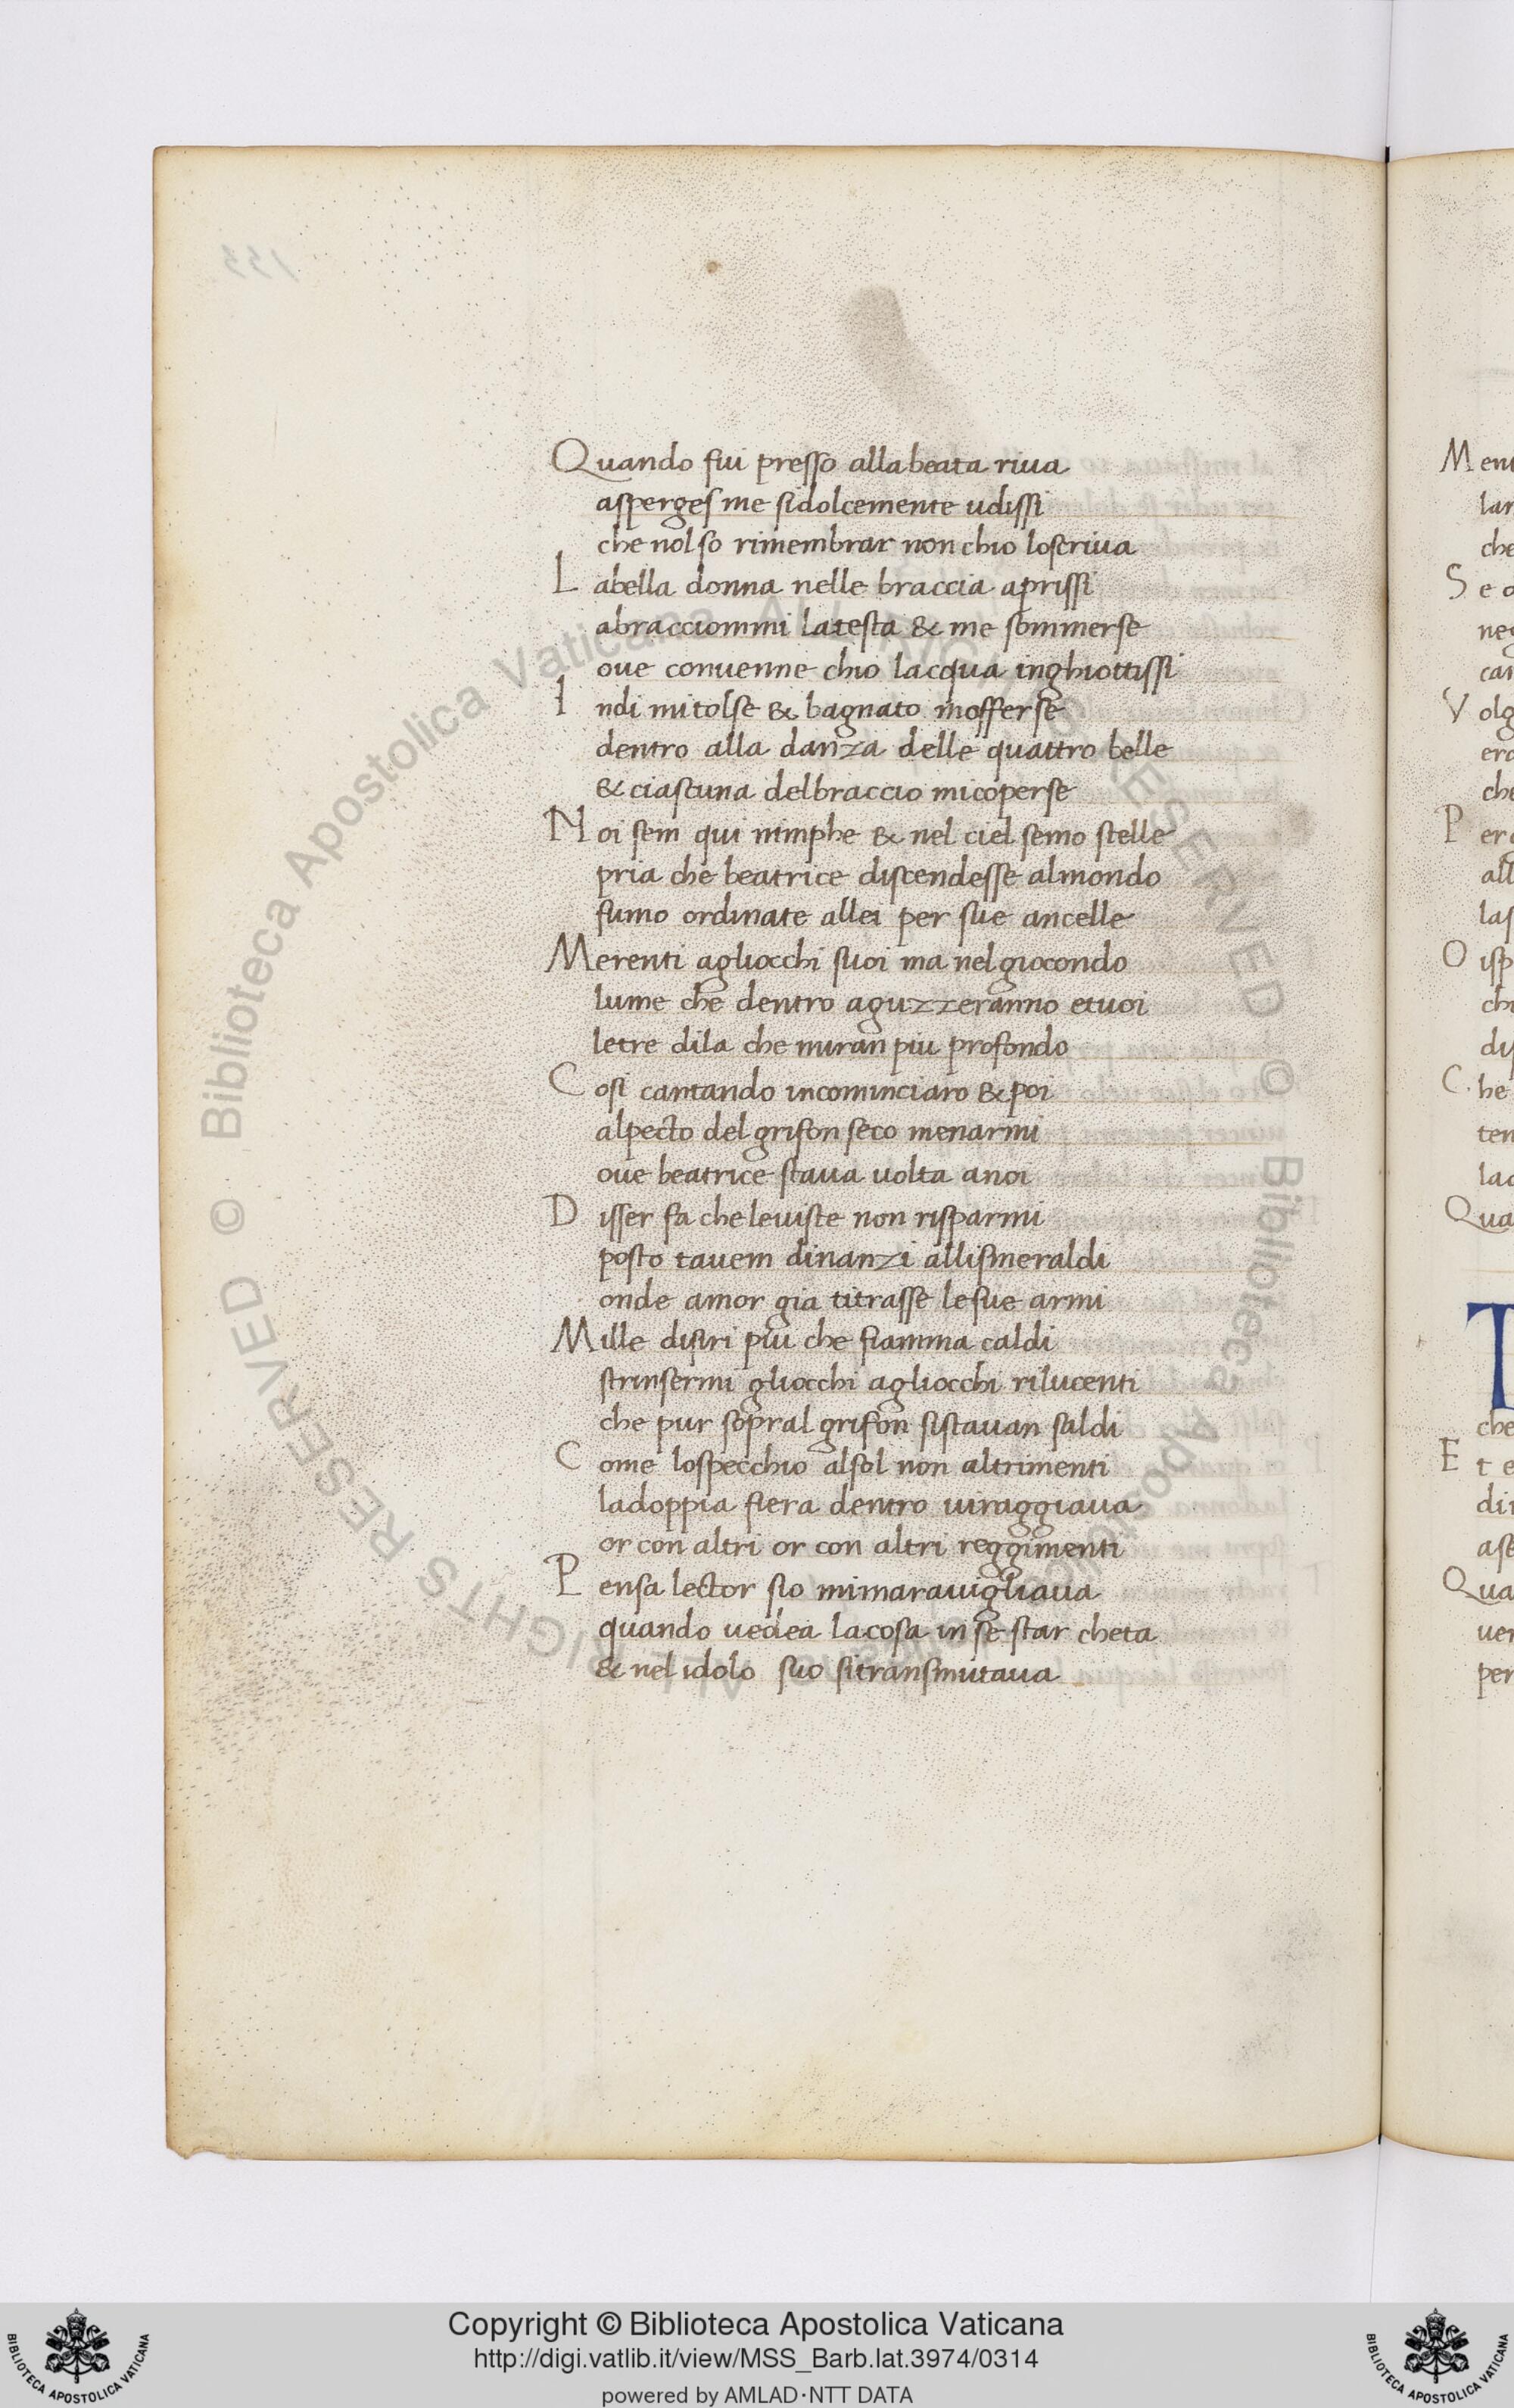 Quando fui presso allabeata riua
asperges me sidolcemente udissi
che nolso rimembrar non chio loscriua
Labella donna nelle braccia aprissi
abracciommi latesta & me sommerse
oue conuenne chio lacqua inghiottissi
Indi mitolse & bagnato mofferse
dentro alla danza delle quattro belle
& ciascuna delbraccio micoperse
Noi sem qui nimphe & nel ciel semo stelle
pria che beatrice discendesse almondo
fumo ordinate allei per sue ancelle
Merenti agliocchi suoi ma nelgiocondo
lume che dentro aguzzeranno etuoi
letre dila che miran piu profondo
Cosi cantando incominciaro & poi
alpecto del grifon seco menarmi
oue beatrice staua uolta anoi
Disser fa cheleuiste non risparmi
posto tauem dinanzi allismeraldi
onde amor gia titrasse lesue armi
Mille disiri piu che fiamma caldi
strinsermi gliocchi agliocchi rilucenti
che pur sopral grifon sistauan saldi
Come lospecchio alsol non altrimenti
ladoppia fiera dentro uiraggiaua
or con altri or con altri reggimenti
Pensa lector sio mimarauigliaua
quando uedea lacosa in se star cheta
& nel idolo suo sitransmutaua
Copyright © Biblioteca Apostolica Vaticana
http://digi.vatlib.it/view/MSS_Barb.lat.3974/0314
powered by AMLAD·NTT DATA